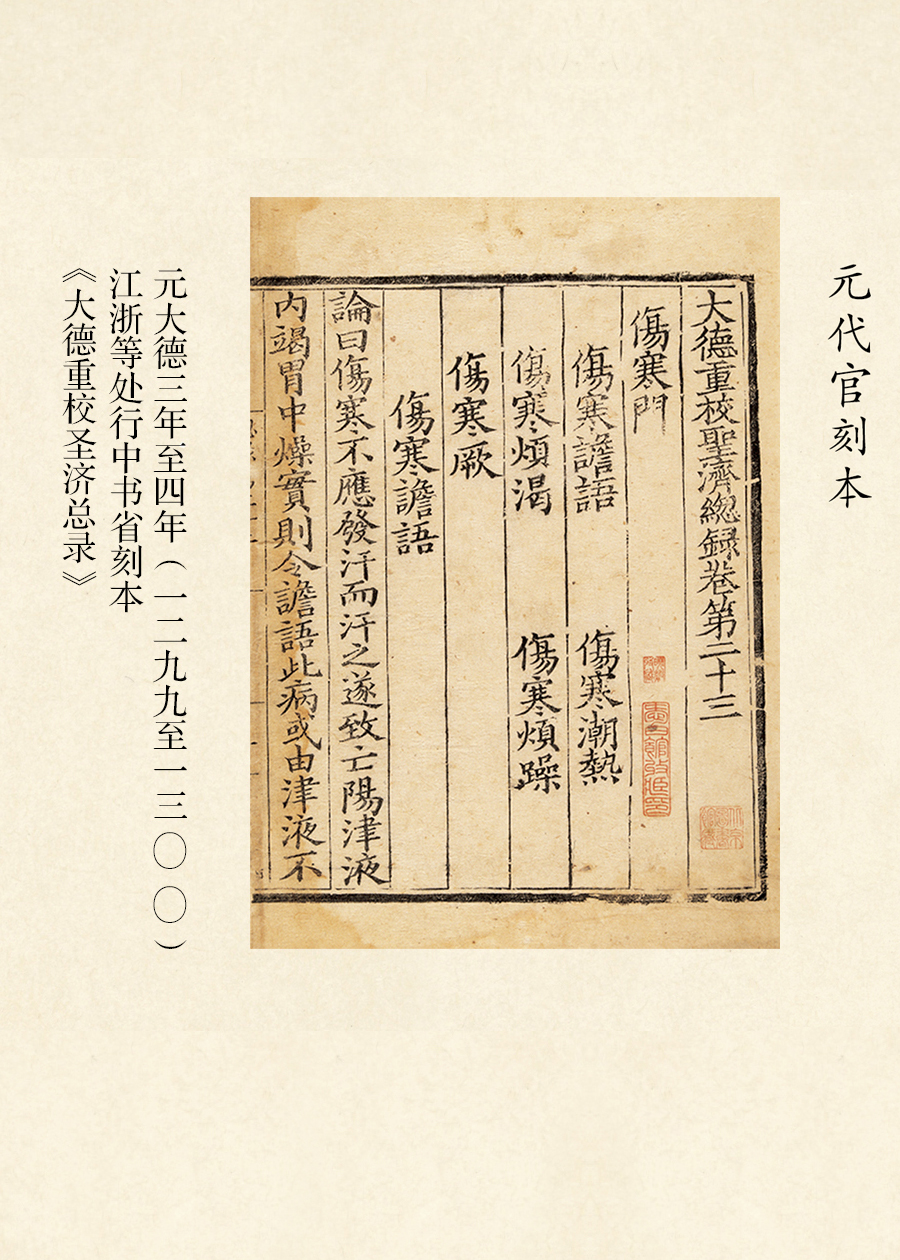 元代官刻本
大德重校聖濟総録卷第二十三
傷寒門
傷寒譫語 傷寒潮熱
傷寒煩渴 傷寒煩躁
傷寒厥
傷寒譫語
論曰傷寒不應發汗而汗之遂致亡陽津液
内竭胃中燥實則令譫語此病或由津液不
元大德三年至四年（一二九九至一三〇〇）
江浙等处行中书省刻本
《大德重校圣济总录》